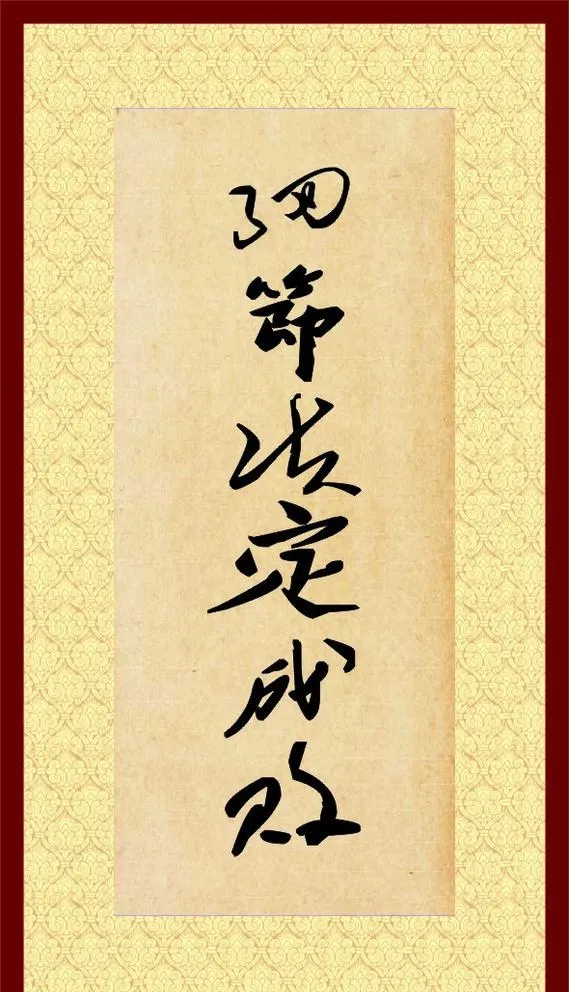 细節决定成败